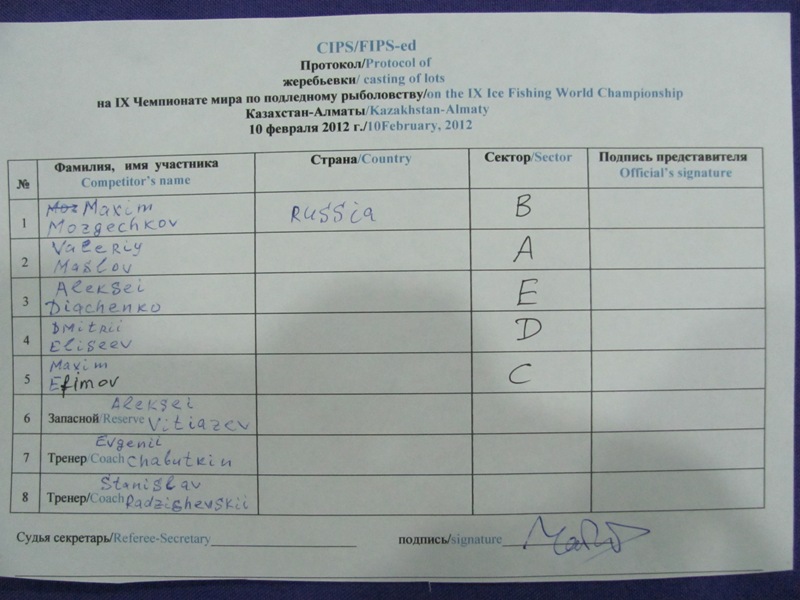 CIPS/FIPS-ed
Протокол/Protocol of
жеребьевки/ casting of lots
на IX Чемпионате мира по подледному рыболовству/on the IX Ice Fishing World Championship
Казахстан-Алматы/Kazakhstan-Almaty
10 февраля 2012 г./10February, 2012
№ Фамилия, имя участника Страна/Country Сектор/Sector Подпись представителя
Competitor's name Official's signature
1 Maxim Russia B
Mozgechkov
2 Valeriy A
Maslov
3 Aleksei E
Diachenko
4 Dmitrii D
Eliseev
5 Maxim C
Efimov
6 Aleksei
Запасной/Reserve Vitiazev
7 Evgenii
Тренер/Coach Chabutkin
8 Stanislav
Тренер/Coach Radzishevskii
Судья секретарь/Referee-Secretary подпись/signature